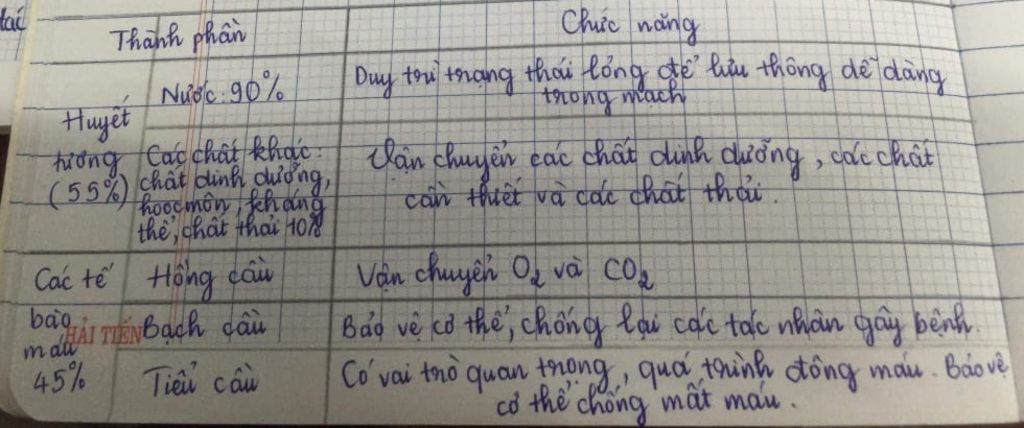 Thành phần Chức năng
Nước: 90% Duy trì trạng thái lỏng để lưu thông dễ dàng
trong mạch
Huyết
tương
(55%)
Các chất khác:
chất dinh dưỡng,
hoocmôn, kháng
thể, chất thải 10%
Vận chuyển các chất dinh dưỡng, các chất
cần thiết và các chất thải.
Các tế
bào
máu
45%
Hồng cầu Vận chuyển O₂ và CO₂
HẢI TIẾN
Bạch cầu Bảo vệ cơ thể, chống lại các tác nhân gây bệnh.
Tiểu cầu Có vai trò quan trọng, quá trình đông máu. Bảo vệ
cơ thể chống mất máu.